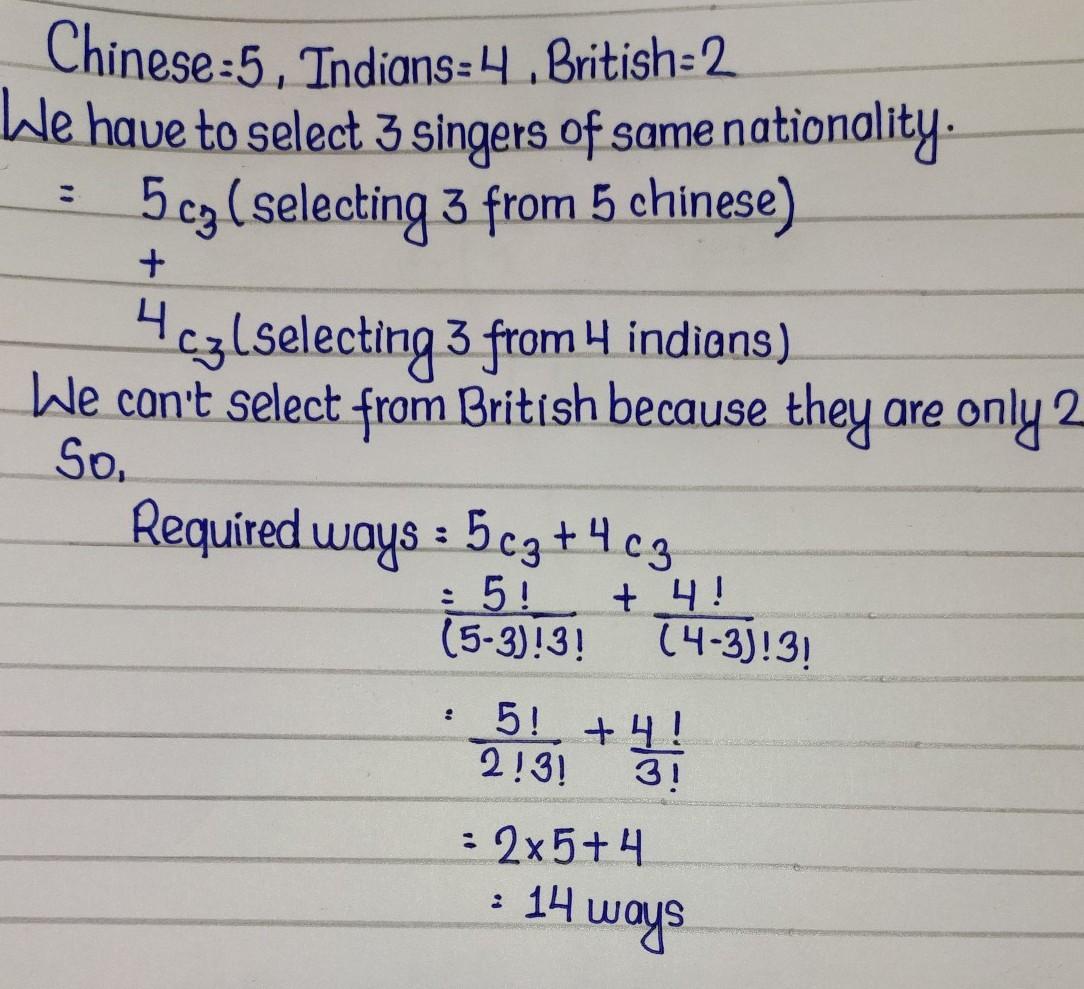 Chinese=5, Indians=4, British=2
We have to select 3 singers of same nationality.
= 5c3 (selecting 3 from 5 chinese)
+
4c3 (selecting 3 from 4 indians)
We can't select from British because they are only 2
So,
Required ways = 5c3 + 4c3
= 5! + 4!
(5-3)!3! (4-3)!3!
= 5! + 4!
2!3! 3!
= 2x5+4
= 14 ways